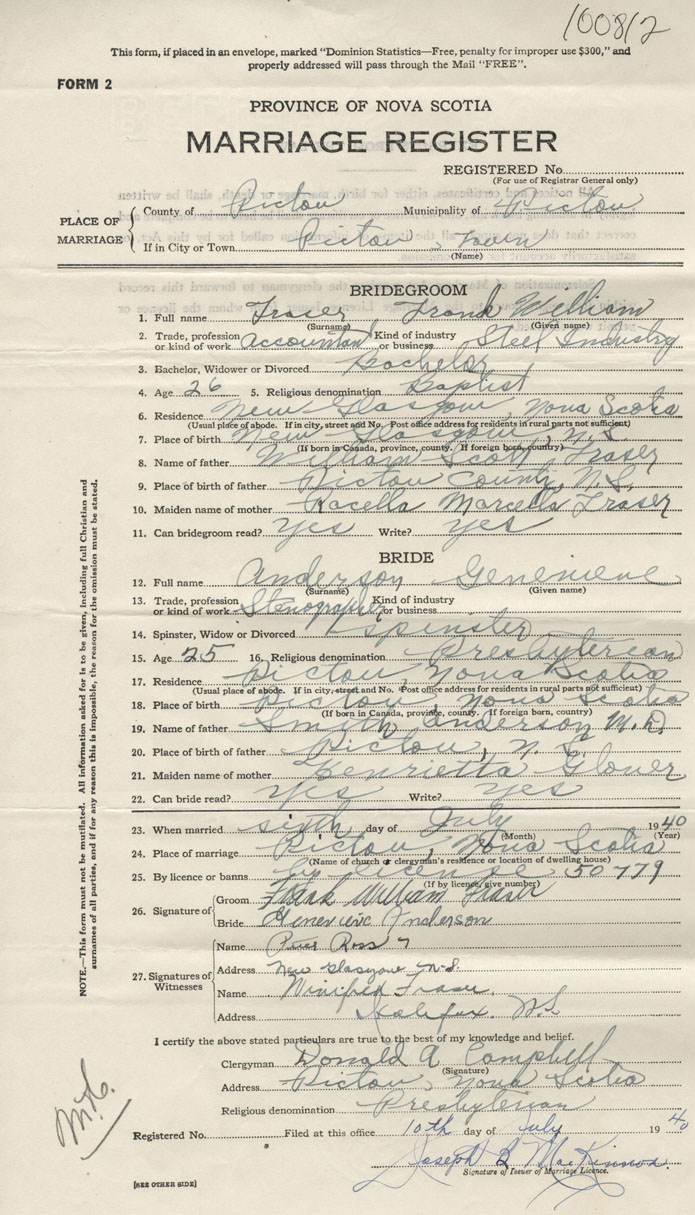 100812
This form, if placed in an envelope, marked "Dominion Statistics—Free, penalty for improper use $300," and
properly addressed will pass through the Mail "FREE".
FORM 2
PROVINCE OF NOVA SCOTIA
MARRIAGE REGISTER
REGISTERED No.
(For use of Registrar General only)
PLACE OF MARRIAGE
County of Pictou Municipality of Pictou
If in City or Town Pictou, Town
(Name)
BRIDEGROOM
1. Full name Fraser Frank William
(Surname) (Given name)
2. Trade, profession or kind of work accountant Kind of industry or business Steel Industry
3. Bachelor, Widower or Divorced Bachelor
4. Age 26 5. Religious denomination Baptist
6. Residence New Glasgow, Nova Scotia
(Usual place of abode. If in city, street and No. Post office address for residents in rural parts not sufficient)
7. Place of birth New Glasgow, N.S.
(If born in Canada, province, county. If foreign born, country)
8. Name of father William Scott Fraser
9. Place of birth of father Pictou County, N.S.
10. Maiden name of mother Marcella Fraser
11. Can bridegroom read? yes Write? yes
BRIDE
12. Full name Anderson Genevieve
(Surname) (Given name)
13. Trade, profession or kind of work Stenographer Kind of industry or business
14. Spinster, Widow or Divorced Spinster
15. Age 25 16. Religious denomination Presbyterian
17. Residence Pictou, Nova Scotia
(Usual place of abode. If in city, street and No. Post office address for residents in rural parts not sufficient)
18. Place of birth Pictou, Nova Scotia
(If born in Canada, province, county. If foreign born, country)
19. Name of father Smith Anderson M.D.
20. Place of birth of father Pictou, N.S.
21. Maiden name of mother Henrietta Glover
22. Can bride read? yes Write? yes
23. When married sixth day of July 1940
(Month) (Year)
24. Place of marriage Pictou, Nova Scotia
(Name of church or clergyman's residence or location of dwelling house)
25. By licence or banns by license 50779
(If by licence, give number)
26. Signature of
Groom Frank William Fraser
Bride Genevieve Anderson
27. Signatures of Witnesses
Name Peter Ross
Address New Glasgow N.S.
Name Winifred Fraser
Address Halifax. N.S.
I certify the above stated particulars are true to the best of my knowledge and belief.
Clergyman Donald A Campbell
(Signature)
Address Pictou, Nova Scotia
Religious denomination Presbyterian
Registered No. Filed at this office 10th day of July 1940
Joseph B MacKinnon
Signature of Issuer of Marriage Licence.
[SEE OTHER SIDE]
NOTE.—This form must not be mutilated. All information asked for is to be given, including full Christian and
surnames of all parties, and if for any reason this is impossible, the reason for the omission must be stated.